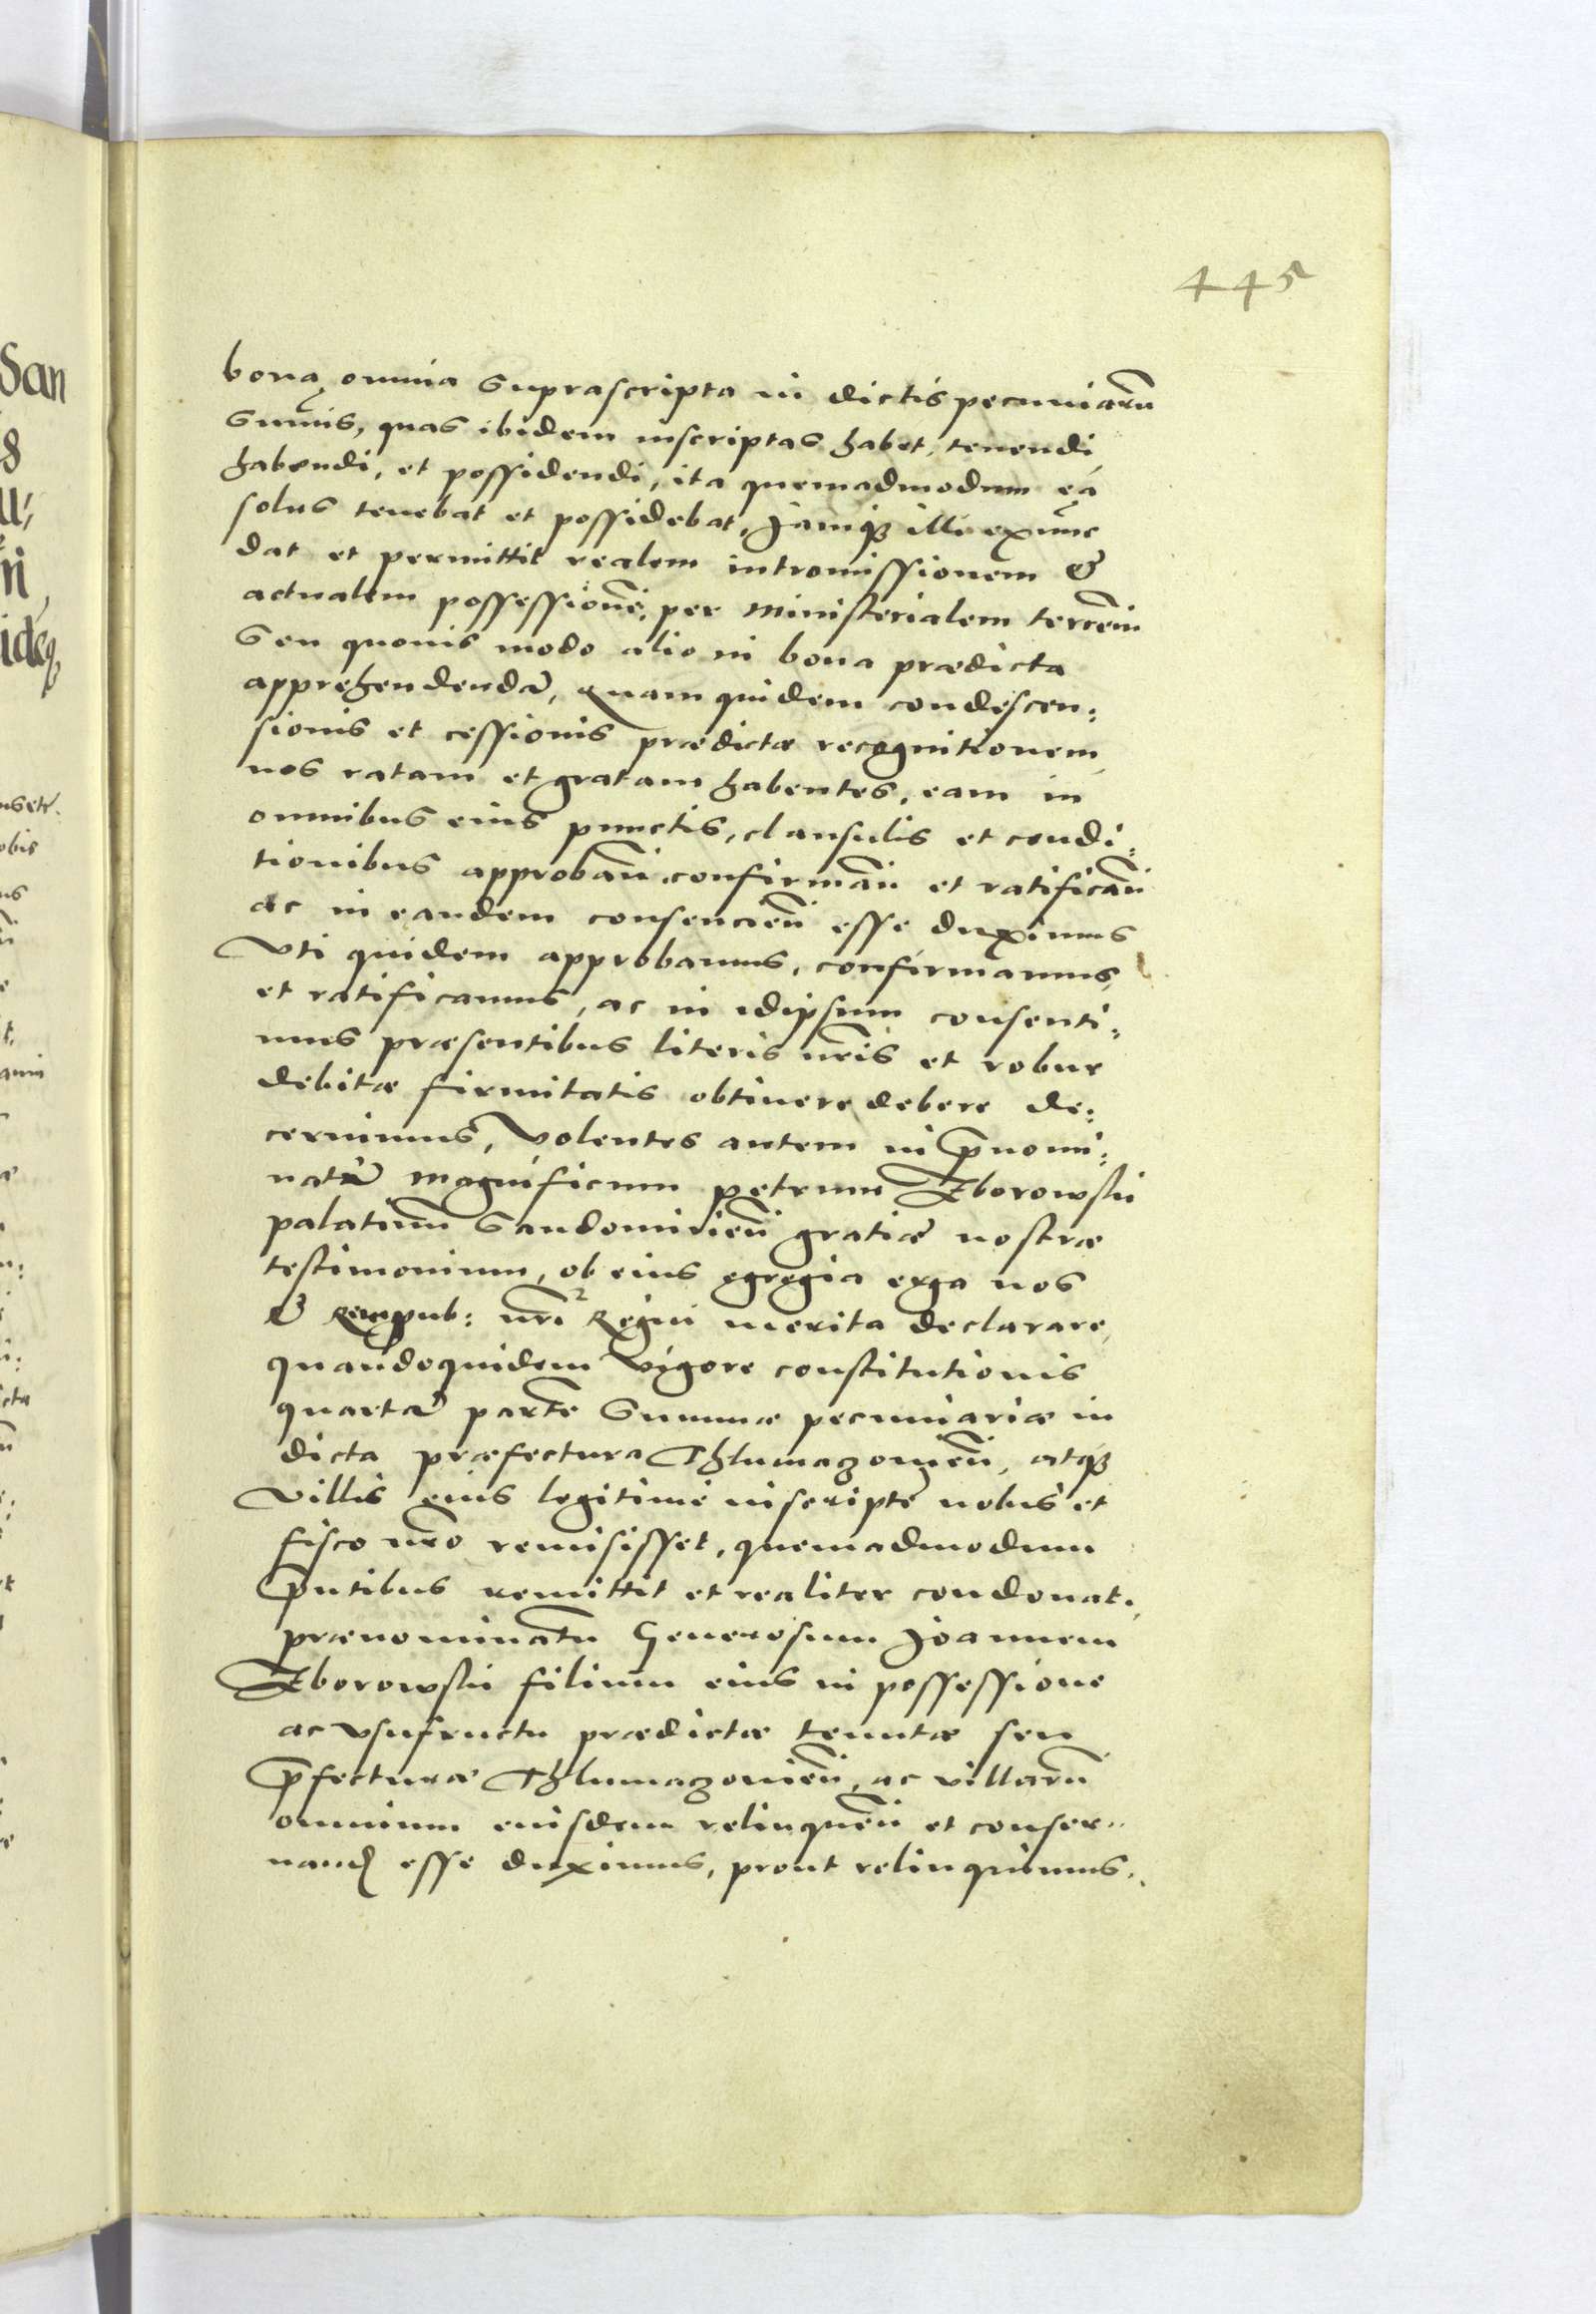 445
bona omnia suprascripta in dictis pecuniarũ
sum̃is, quas ibidem inscriptas habet, tenendi,
habendi, et possidendi, ita quemadmodum ea
solus tenebat et possidebat, Jamq3 illi ex nunc
dat et permittit realem intromissionem &
actualem possessionẽ, per Ministerialem terrẽm
Seu quouis modo alio in bona prædicta
apprehendendã, quam quidem condescen:
sionis et cessionis prædictæ recognitionem,
nos ratam et gratam habentes, eam in
omnibus eius punctis, clausulis et condi:
tionibus approbañ. confirmañ et ratificañ
ac in eandem consencieñ esse duximus
Vti quidem approbamus, confirmamus,
et ratificamus, ac in idipsum consenti:
mus præsentibus literis nr̃is et robur
debitæ firmitatis obtinere debere de:
cernimus, Volentes autem in p̃nomi:
natũ Magnificum petrum Zborowski
palatinũ Sandomirieñ gratiæ nostræ
testimonium, ob eius egregia erga nos
& Rempub: nr̃i Regni merita declarare,
quandoquidem vigore constitutionis
quartã partẽ Summæ pecuniariæ in
dicta præfectura Thlumaczomeñ, atq3
villis eius legitime inscriptẽ nobis et
fisco nr̃o remisisset, quemadmodum
p̃ntibus remittit et realiter condonat,
prænominatũ Generosum Joannem
Zborowski filium eius in possessione
ac vsufructu prædictæ tenutæ seu
p̃fecturæ Thlumaczomeñ, ac villarũ
omnium eiusdem relinqueñ et conser„
uand esse duximus, prout relinquimus.
San